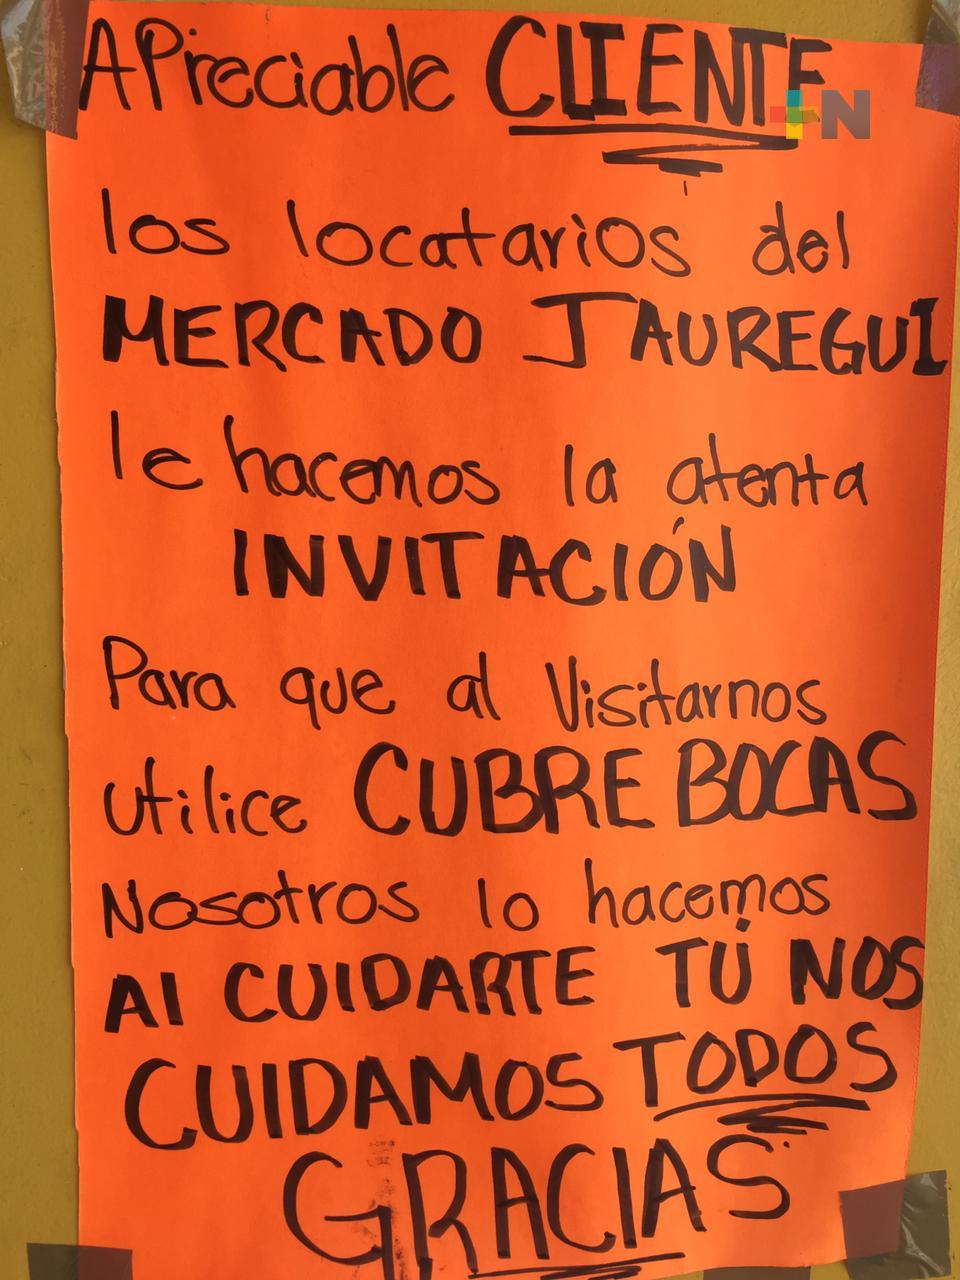 APreciable CLIENTE
+N
los locatarios del
MERCADO JAUREGUI
le hacemos la atenta
INVITACIÓN
Para que al Visitarnos
utilice CUBRE BOCAS
Nosotros lo hacemos
Al CUIDARTE TÚ NOS
CUIDAMOS TODOS
GRACIAS